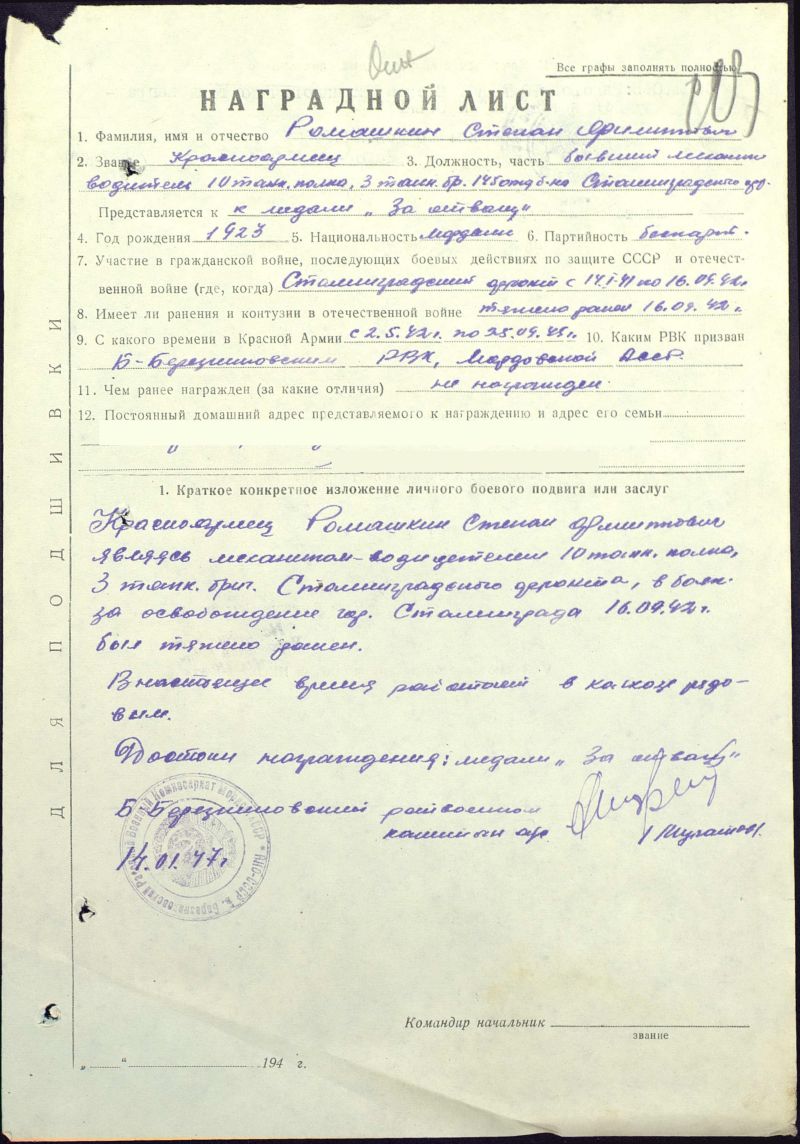 Все графы заполнять полностью
НАГРАДНОЙ ЛИСТ
1. Фамилия, имя и отчество Ромашкин Степан Филиппович
2. Звание Красноармеец 3. Должность, часть бывший механик
водитель 10 танк. полка, 3 танк. бр. 145 отд б-на Сталинградского
Представляется к к медали „За отвагу"
4. Год рождения 1923 5. Национальность Мордвин 6. Партийность беспарт.
7. Участие в гражданской войне, последующих боевых действиях по защите СССР и отечест-
венной войне (где, когда) Сталинградский фронт с по 16.09.42г.
8. Имеет ли ранения и контузии в отечественной войне тяжело ранен 16.09.42г.
9. С какого времени в Красной Армии с 2.5.42г. по 10. Каким РВК призван
Б-Березниковским РВК, Мордовской АССР.
11. Чем ранее награжден (за какие отличия) не награжден
12. Постоянный домашний адрес представляемого к награждению и адрес его семьи
1. Краткое конкретное изложение личного боевого подвига или заслуг
Красноармеец Ромашкин Степан Филиппович
являясь механиком-водителем 10 танк. полка,
3 танк. бриг. Сталинградского фронта, в боях
за освобождение гор. Сталинграда 16.09.42г.
был тяжело ранен.
В настоящее время работает в колхозе рядо-
вым.
Достоин награждения: медали „За отвагу"
Б-Березниковский райвоенком
капитан а/с
14.01.47г.
Командир начальник
звание
„ " 194 г.
ДЛЯ ПОДШИВКИ